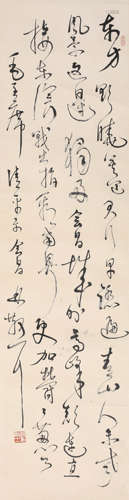 东方欲晓莫道君行早踏遍青山人未老
风景这边独好会昌城外高峰颠连直
接东溟战士指看南粤更加郁郁葱葱
毛主席清平乐会昌